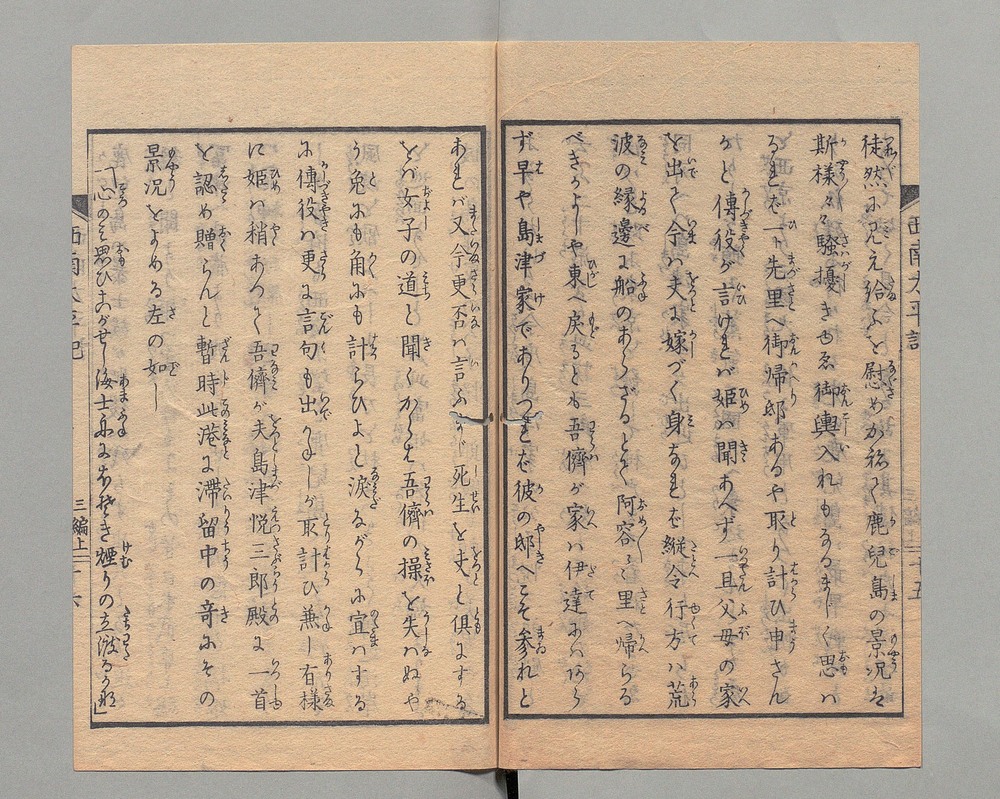 徒然に見え給ふを慰めか祢て鹿兒島の景况は
斯様々々騒擾き由ゑ御輿入れもなるまじく思は
るれば一ト先里へ御帰邸あるや取り計ひ申さん
かと傅役が言けれバ姫ハ聞あへず一旦父母の家
を出て今ハ夫に嫁づく身なれば縦令行方ハ荒
波の縁邊に船のあらざるとて阿容々々里へ帰らる
べきかよしや東へ戻るとも吾儕が家ハ伊達にハあら
ず早や島津家でありつれば彼の邸へこそ参れと
あれバ又今更否ハ言ふ 死生を夫と倶にする
をバ女子の道と聞くからは吾儕の操を失ハぬや
う兔にも角にも計らひよと涙ながらに宣ハする
に傅役ハ更に言句も出 取計ひ兼し有様
に姫ハ稍あつて吾儕が夫島津悦三郎殿に一首
を認め贈らんと暫時此港に滞留中の竒にその
景况をよめる左の如し
「心のミ思ひこがせし海士 き煙りの立波る
西南太平記
三編上
十五
西南太平記
三編上
十六